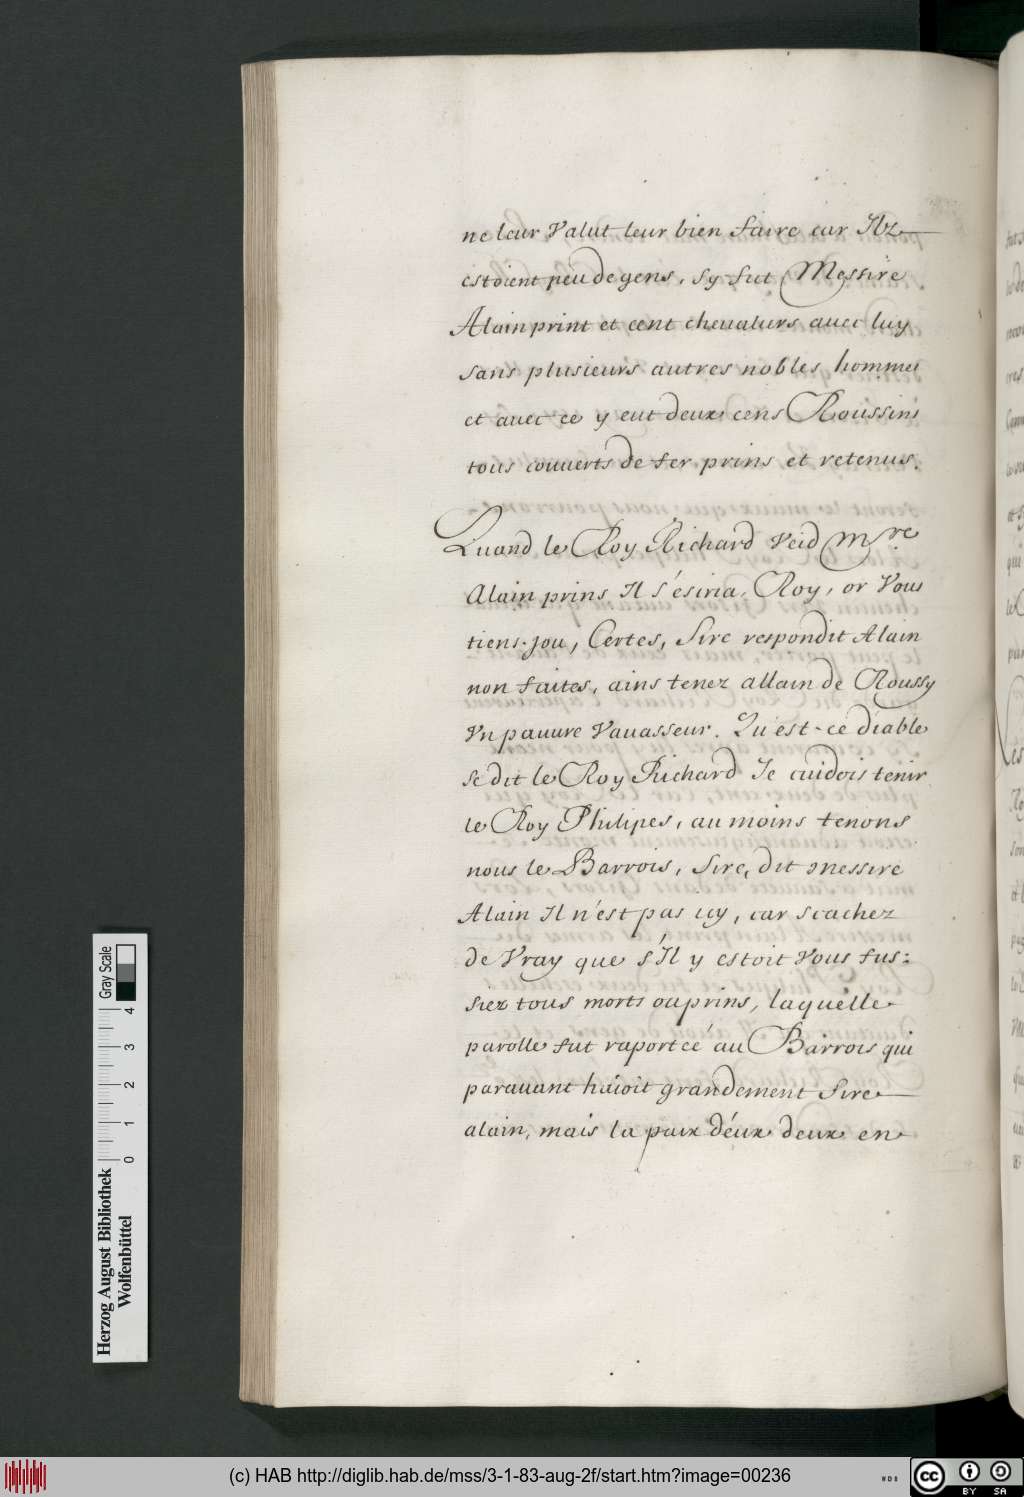 ne leur Valut leur bien faire car Ilz
estoient peu de gens, sy fut Messire
Alain print et cent cheualiers auec luy
sans plusieurs autres nobles hommes
et auec ce y eut deux cens Roussins
tous couuerts de fer prins et retenus.
Quand le Roy Richard Veid Mre
Alain prins Il s'escria, Roy, or Vous
tiens-jou, Certes, Sire respondit Alain
non faites, ains tenez allain de Roussy
Vn pauure Vauasseur. Qu'est-ce diable
se dit le Roy Richard Je cuidois tenir
le Roy Philipes, au moins tenons
nous le Barrois, Sire, dit messire
Alain Il n'est pas icy, car scachez
de Vray que s'Il y estoit Vous fus:
siez tous morts ou prins, laquelle
parolle fut raportée au Barrois qui
parauant haioit grandement Sire
alain, mais la paix d'eux deux en
Gray Scale
0 1 2 3 4
Herzog August Bibliothek
Wolfenbüttel
(c) HAB http://diglib.hab.de/mss/3-1-83-aug-2f/start.htm?image=00236
WDB
cc BY SA